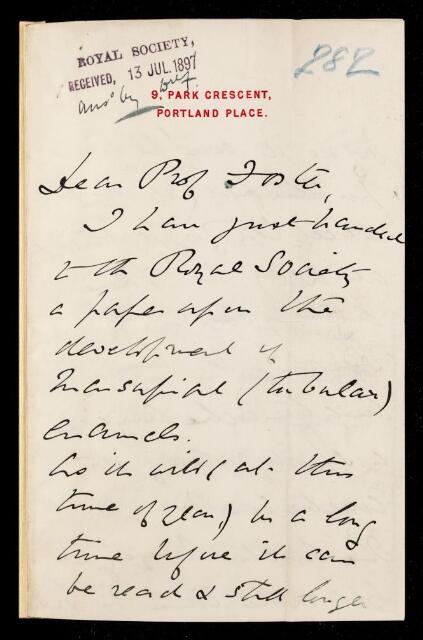 ROYAL SOCIETY,
RECEIVED, 13 JUL. 1897
ansd by
282
9, PARK CRESCENT,
PORTLAND PLACE.
Dear Prof Foster,
I have just handed
to the Royal Society
a paper upon the
development of
Marsupial (tubular)
enamels.
As it will (at this
time of year,) be a long
time before it can
be read & still longer